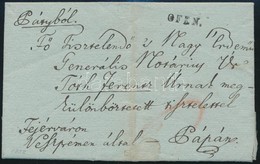 Pátyból.
OFEN.
Fő Tisztelendő 's Nagy Érdemű
Generális Notárius Úr
Tóth Ferentz Úrnak meg-
különböztetett tisztelettel
Fejérváron
Veszprémen által — Pápán